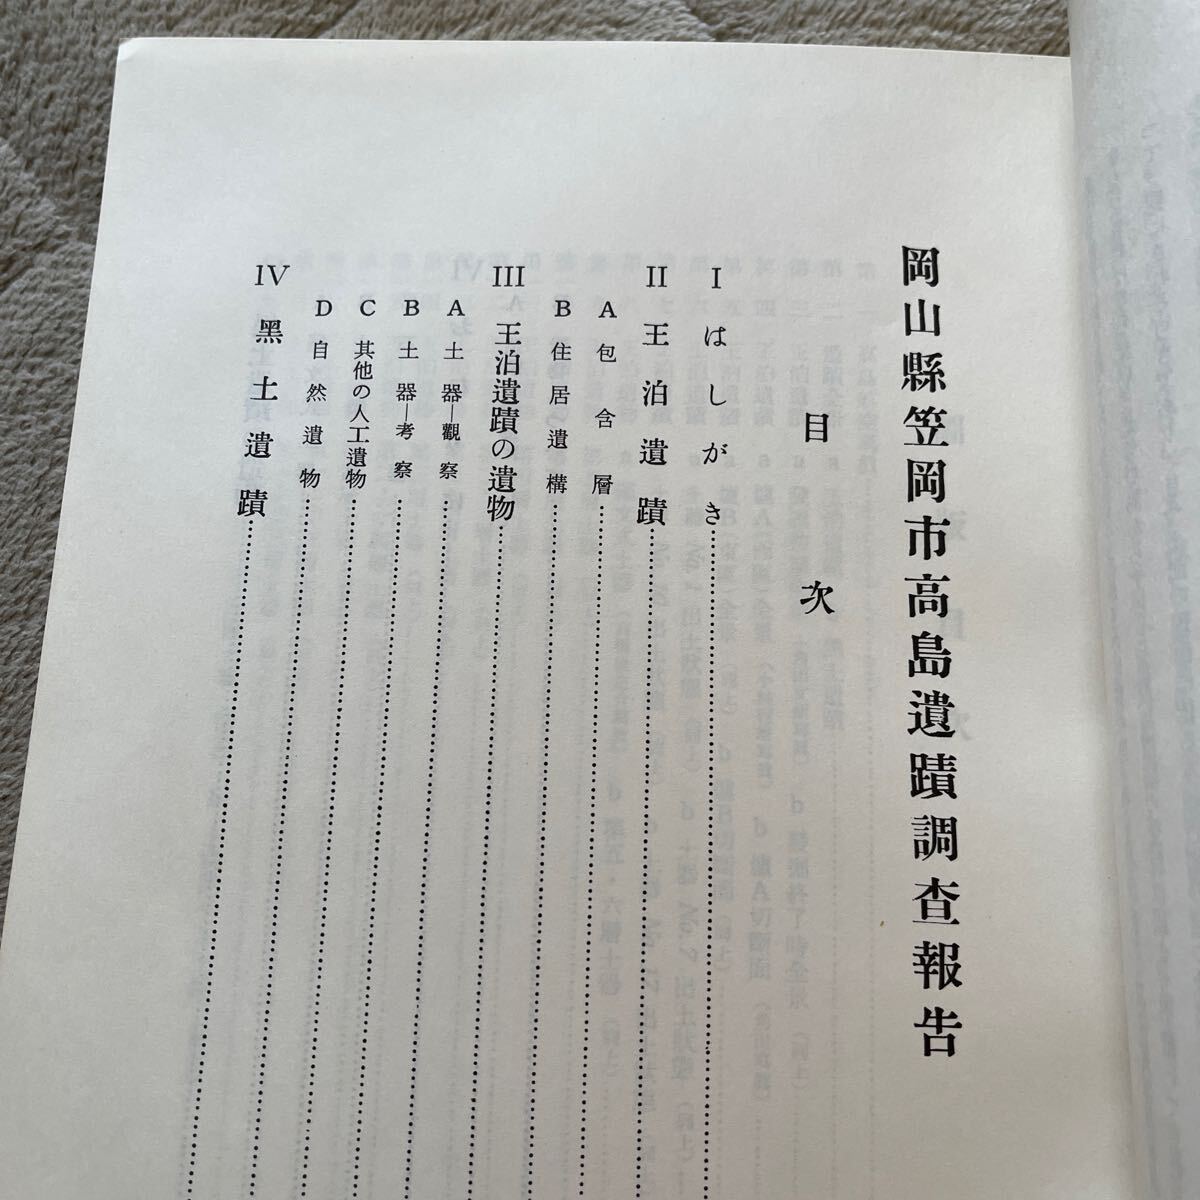 岡山縣笠岡市高島遺蹟調查報告
目次
I はしがき
II 王泊遺蹟
A 包含層
B 住居遺構
III 王泊遺蹟の遺物
A 土器―觀察
B 土器―考察
C 其他の人工遺物
D 自然遺物
IV 黑土遺蹟